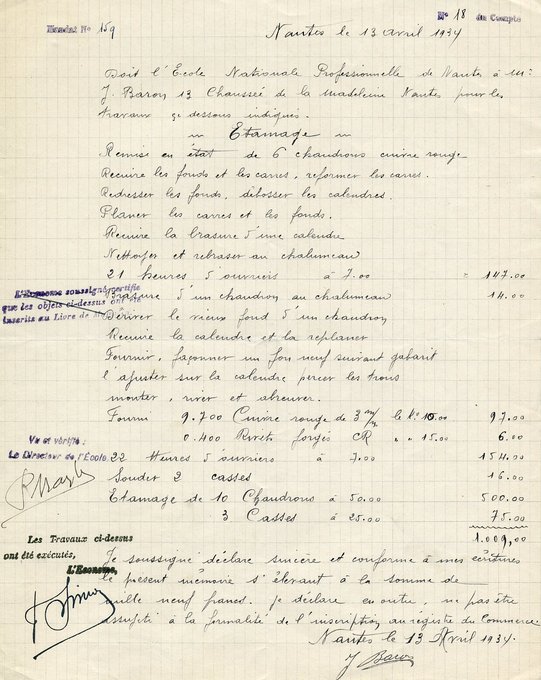 Mandat N° 159
N° 18 du Compte
Nantes le 13 avril 1934
Doit l'École Nationale Professionnelle de Nantes à Mr
J. Baron 13 Chaussée de la Madeleine Nantes pour les
travaux çe dessous indiqués.
Etamage
Remise en état de 6 chaudrons cuivre rouge
Recuire les fonds et les carres, reformer les carres.
Redresser les fonds, débosser les calendres.
Planer les carres et les fonds.
Recuire la brasure d'une calendre
Nettoyer et rebraser au chalumeau
21 heures d'ouvriers à 7.00 " 147.00
Brasure d'un chaudron au chalumeau 14.00
Dériver le vieux fond d'un chaudron
Recuire la calendre et la replaner
Fournir, façonner un fon neuf suivant gabarit
l'ajuster sur la calendre percer les trous
monter, river et abreuver.
Fourni 9.700 Cuivre rouge de 3 m/m le Ko 10.00 97.00
0.400 Rivets forgés CR " " 15.00 6.00
22 Heures d'ouvriers à 7.00 154.00
Souder 2 casses 16.00
Etamage de 10 Chaudrons à 50.00 500.00
3 Casses à 25.00 75.00
1.009,00
Je soussigné déclare sincère et conforme à mes écritures
le présent mémoire s'élevant à la somme de
mille neuf francs. je déclare en outre, ne pas être
assujeti à la formalité de l'inscription au registre du Commerce
Nantes le 13 Avril 1934.
J Baron
L'Econome soussigné certifie
que les objets ci-dessus ont été
inscrits au Livre de
Vu et vérifié :
Le Directeur de l'École
Les Travaux ci-dessus
ont été exécutés,
L'Econome,